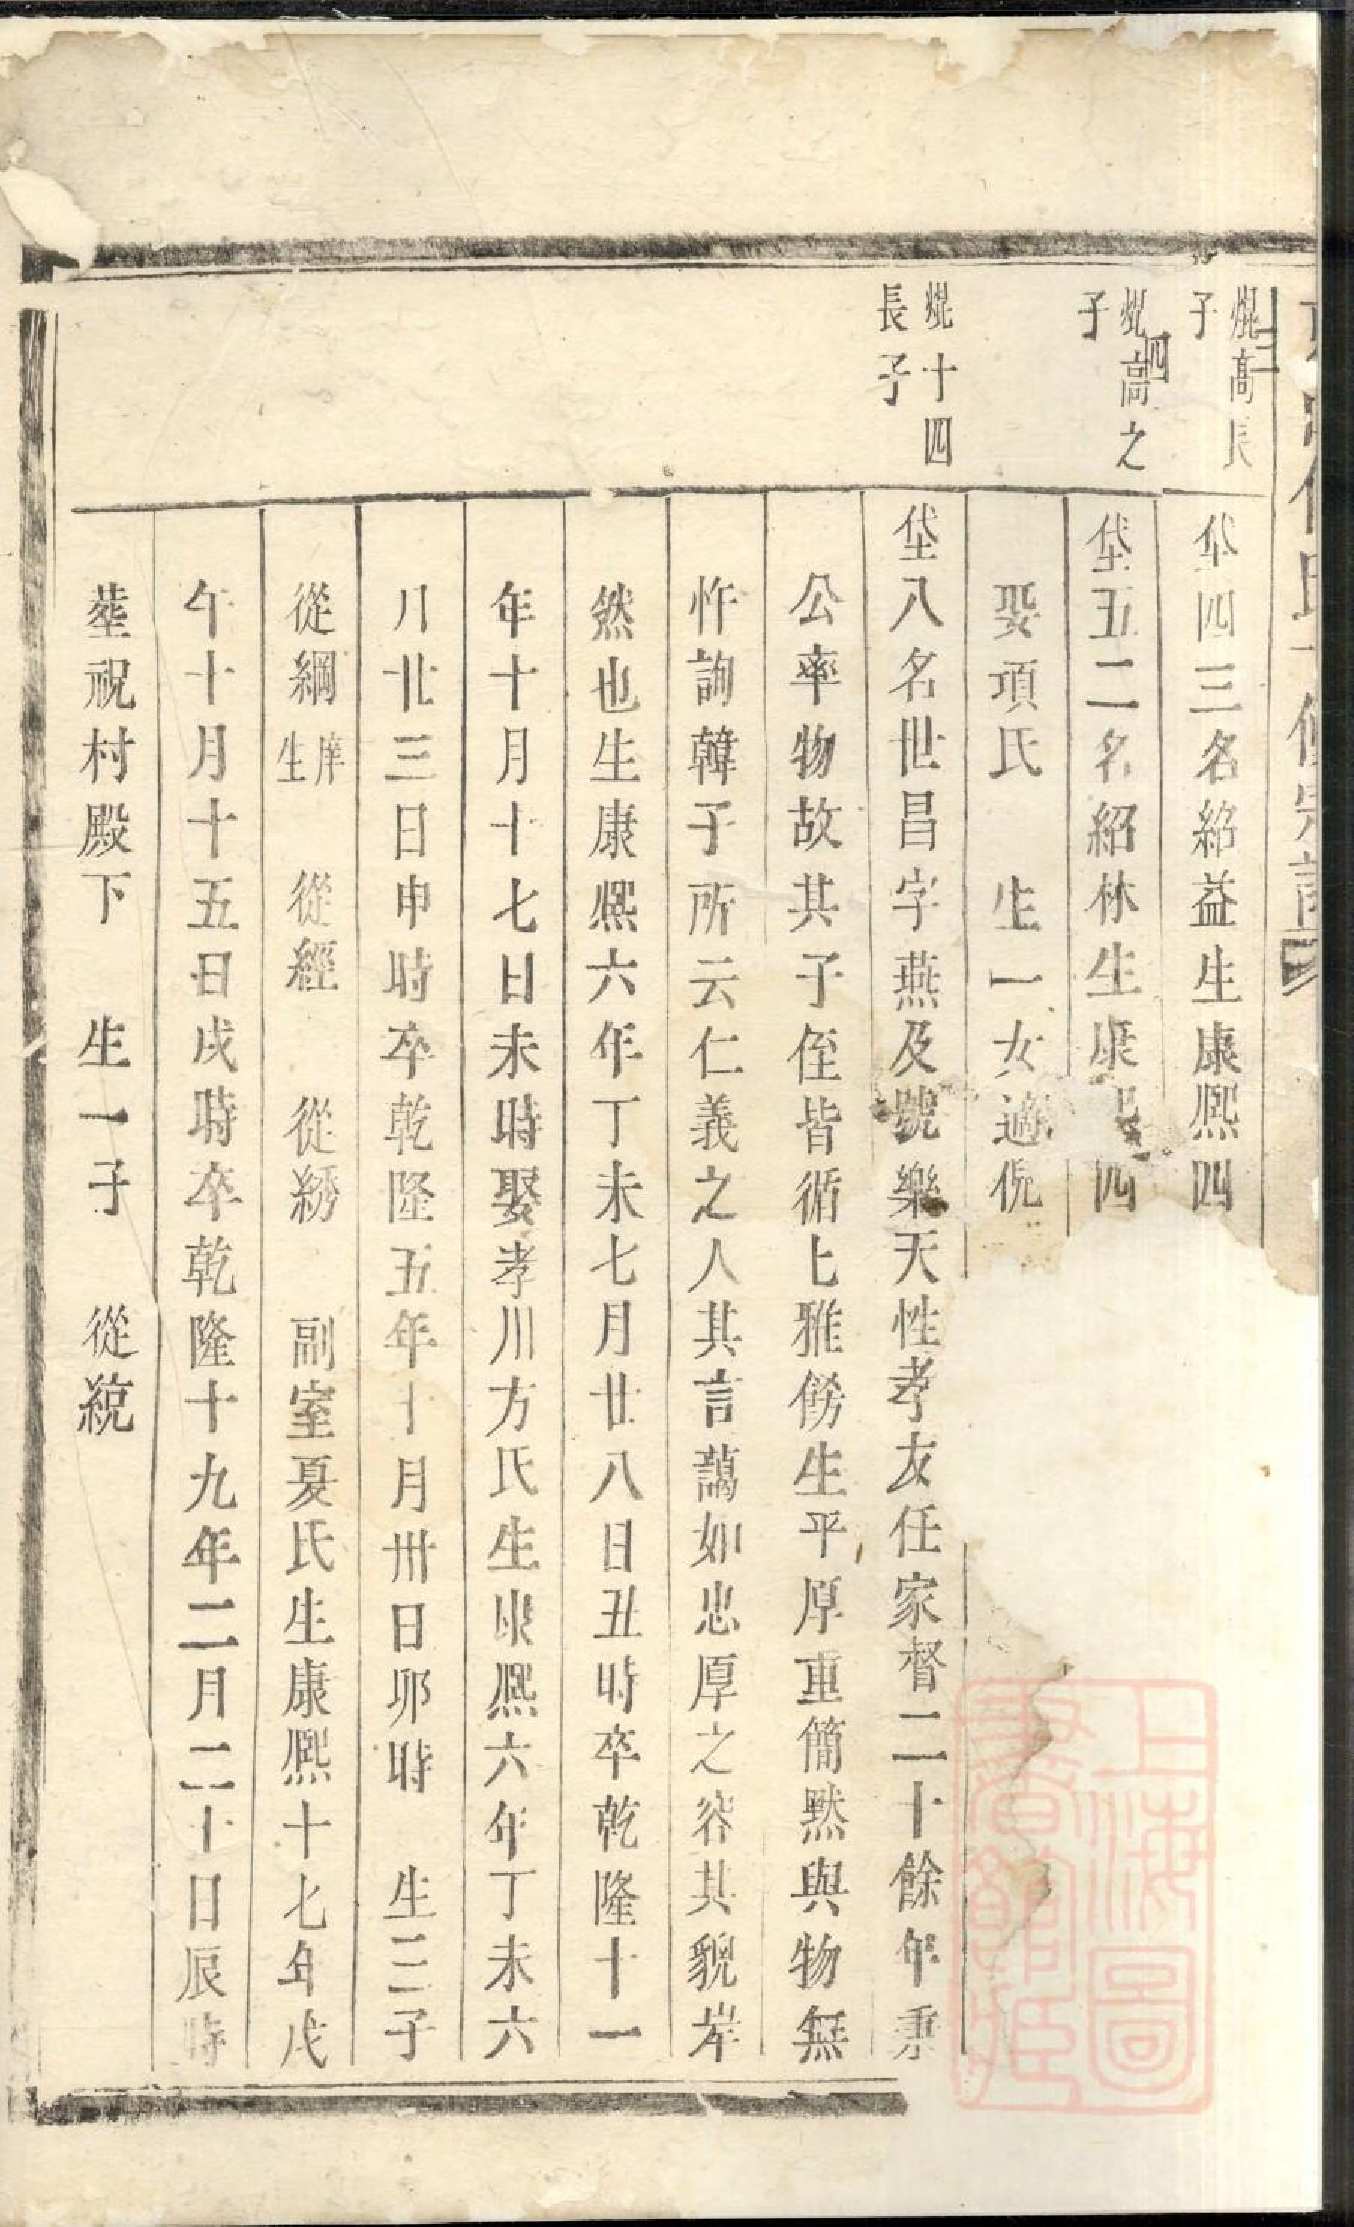 焜三高長
子
垈四三名紹益生康熙四
焜四高之
子
垈五二名紹林生康熙四
娶項氏　生一女適倪
焜十四
長子
垈八名世昌字燕及號樂天性孝友任家督二十餘年秉
公率物故其子侄皆循上雅飭生平厚重簡默與物無
忤詢韓子所云仁義之人其言藹如忠厚之容其貌岸
然也生康熙六年丁未七月廿八日丑時卒乾隆十一
年十月十七日未時娶孝川方氏生康熙六年丁未六
月廿三日申時卒乾隆五年十月卅日卯時　生三子
從綱庠生　從經　從綉　副室夏氏生康熙十七年戊
午十月十五日戌時卒乾隆十九年二月二十日辰時
塟祝村殿下　生一子　從統
上海圖
書館藏